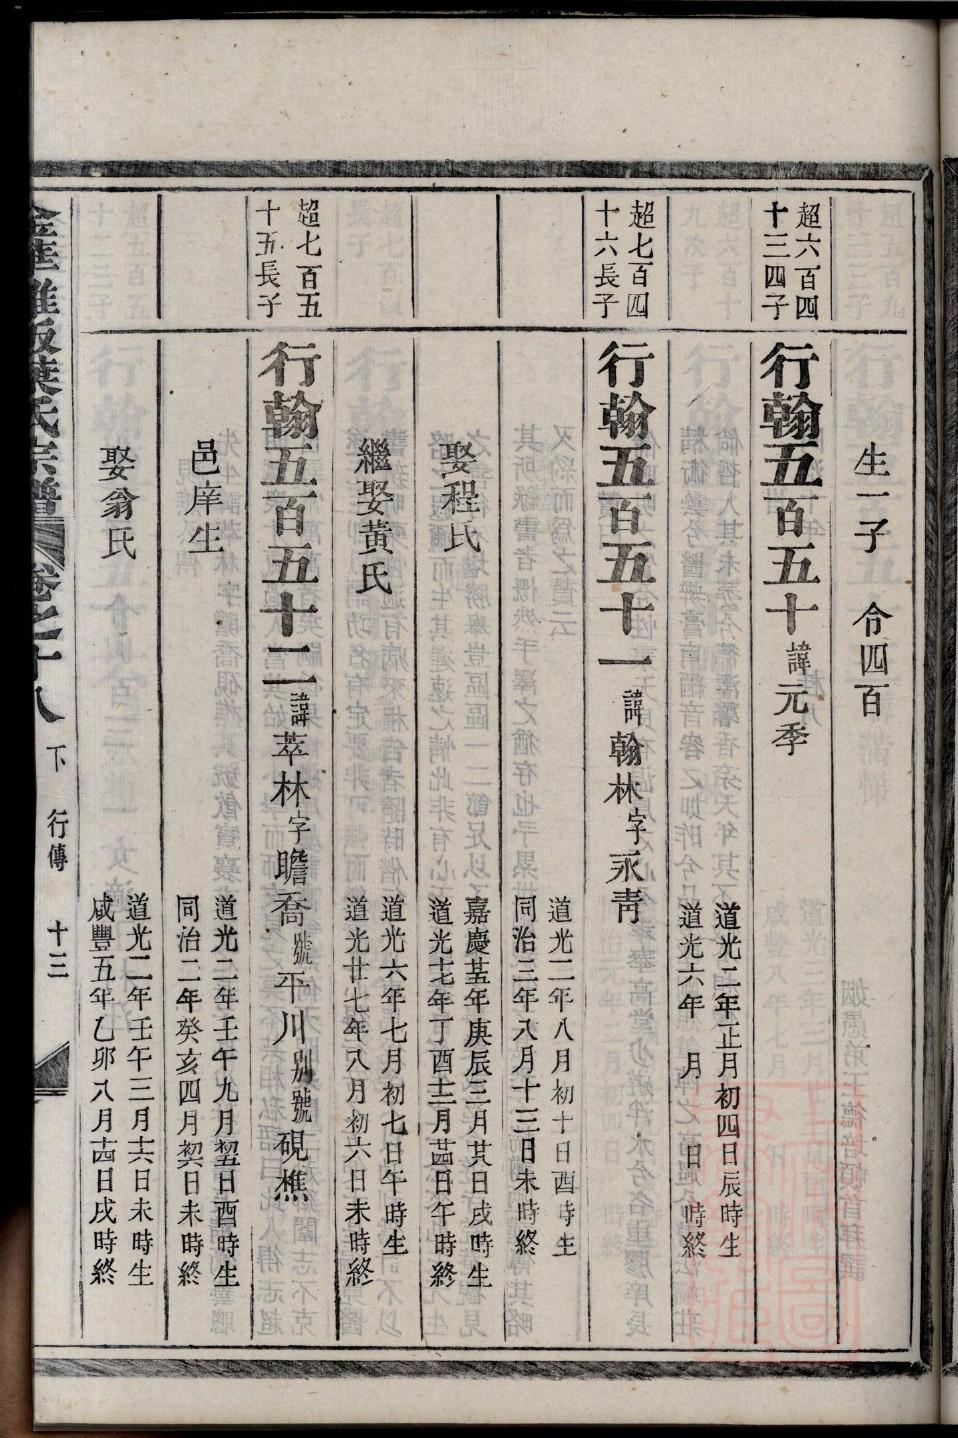 生一子 令四百
超六百四
十三四子
行翰五百五十諱元季
道光二年正月初四日辰時生
道光六年 月 日 時終
超七百四
十六長子
行翰五百五十一諱翰林字永青
道光二年八月初十日酉時生
同治三年八月十三日未時終
娶程氏
嘉慶廿五年庚辰三月廿八日戌時生
道光十七年丁酉十二月廿四日午時終
繼娶黃氏
道光六年七月初七日午時生
道光廿七年八月初六日未時終
超七百五
十五長子
行翰五百五十二諱萃林字瞻喬號平川別號硯樵
邑庠生
道光二年壬午九月初五日酉時生
同治二年癸亥四月初六日未時終
娶翁氏
道光二年壬午三月十六日未時生
咸豐五年乙卯八月十四日戌時終
葉氏宗譜 卷之十八 下 行傳 十三